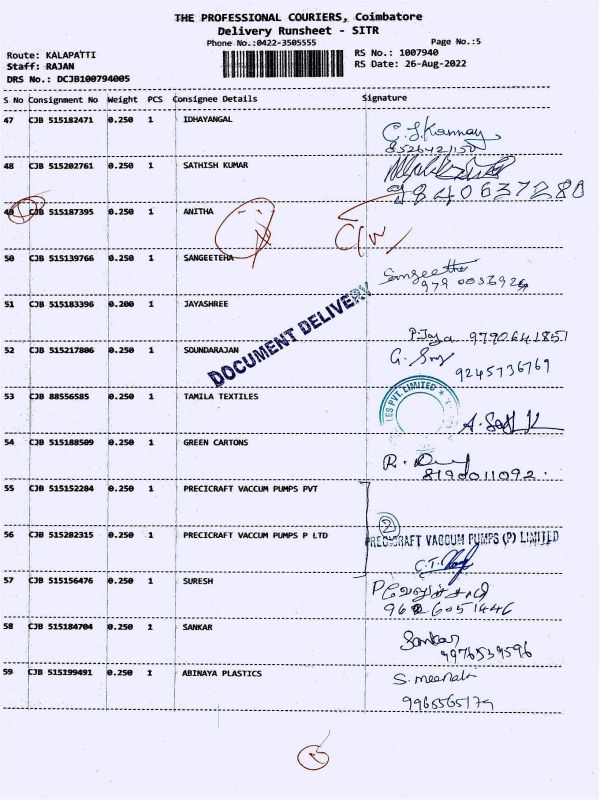 THE PROFESSIONAL COURIERS, Coimbatore
Delivery Runsheet - SITR
Phone No.:0422-3505555
Page No.:5
Route: KALAPATTI
RS No.: 1007940
Staff: RAJAN
RS Date: 26-Aug-2022
DRS No.: DCJB100794005
S No Consignment No Weight PCS Consignee Details Signature
47 CJB 515182471 0.250 1 IDHAYANGAL
48 CJB 515202761 0.250 1 SATHISH KUMAR
9840637280
49 CJB 515187395 0.250 1 ANITHA
C/W
50 CJB 515139766 0.250 1 SANGEETEHA
Sangeetha
51 CJB 515183396 0.200 1 JAYASHREE
DOCUMENT DELIVERY
P.Jaya 9790641851
52 CJB 515217806 0.250 1 SOUNDARAJAN
9245736769
53 CJB 88556585 1 TAMILA TEXTILES
LES PVT. LIMITED
54 CJB 515188509 0.250 1 GREEN CARTONS
8190011092
55 CJB 515152284 0.250 1 PRECICRAFT VACCUM PUMPS PVT
2
56 CJB 515202315 0.250 1 PRECICRAFT VACCUM PUMPS P LTD
PRECICRAFT VACCUM PUMPS (P) LIMITED
57 CJB 515156476 0.250 1 SURESH
9626051446
58 CJB 515184704 0.250 1 SANKAR
Sankar
9976539596
59 CJB 515199491 0.250 1 ABINAYA PLASTICS
S. meena